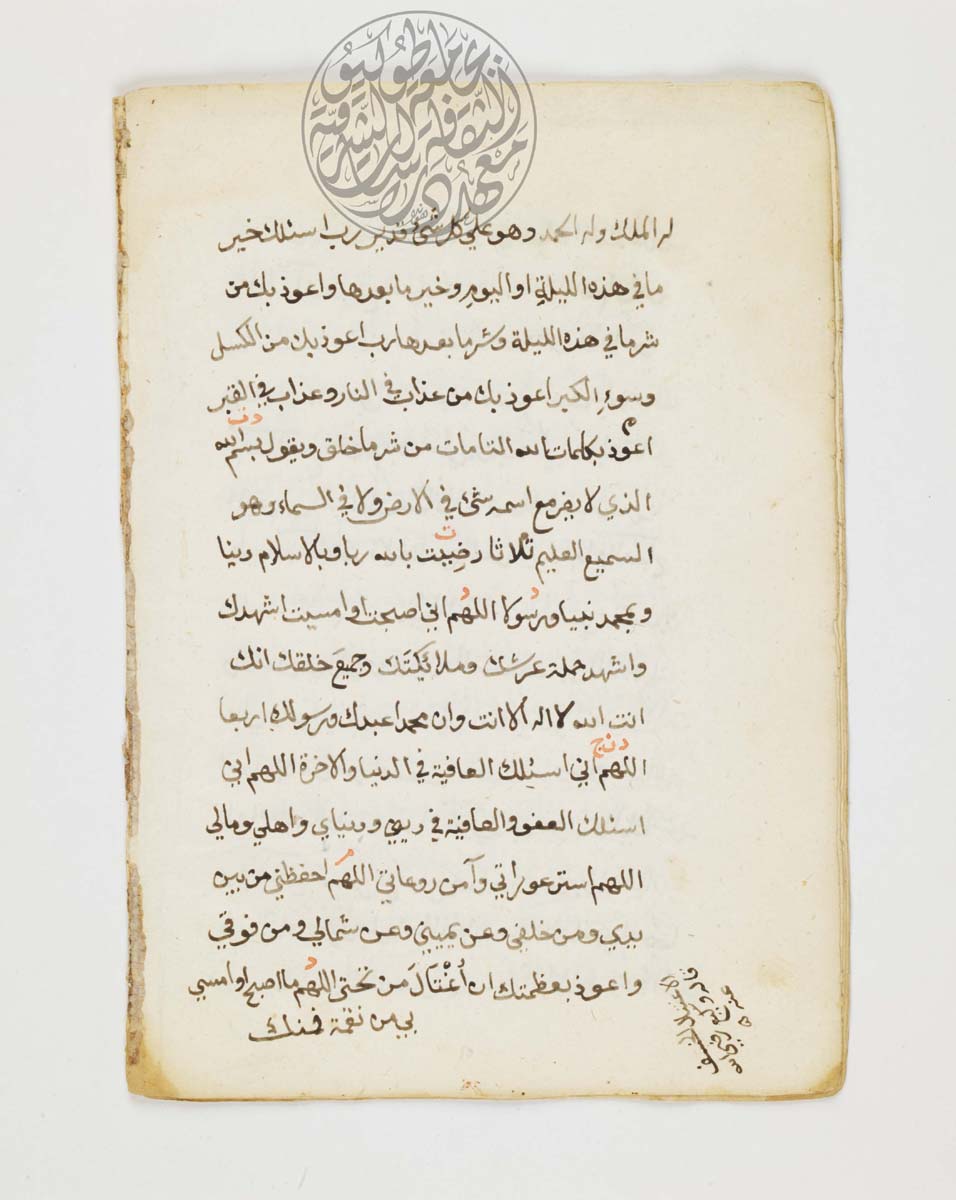 جامعة طوكيو
معهد الدراسات الثقافة الشرقية
له الملك وله الحمد وهو علي كل شئ قدير رب اسئلك خير
ما في هذه الليلة او اليوم وخير ما بعدها واعوذ بك من
شر ما في هذه الليلة وشر ما بعدها رب اعوذ بك من الكسل
وسوء الكبر اعوذ بك من عذاب في النار وعذاب في القبر
م دت
اعوذ بكلمات الله التامات من شر ما خلق ويقول بسم الله
الذي لا يضر مع اسمه شئ في الارض ولا في السماء وهو
ت
السميع العليم ثلاثا رضيت بالله ربا وبالاسلام دينا
د د
وبمحمد نبيا ورسولا اللهم اني اصبحت او امسيت اشهدك
واشهد حملة عرشك وملائكتك وجميع خلقك انك
انت الله لا اله الا انت وان محمدا عبدك ورسولك اربعا
اللهم اني اسئلك العافية في الدنيا والاخرة اللهم اني
اسئلك العفو والعافية في ديني ودنياي واهلي ومالي
اللهم استر عوراتي وآمن روعاتي اللهم احفظني من بين
يدي ومن خلفي وعن يميني وعن شمالي ومن فوقي
د
واعوذ بعظمتك ان أُغْتَالَ من تحتي اللهم ما اصبح او امسي
بي من نقمة فمنك